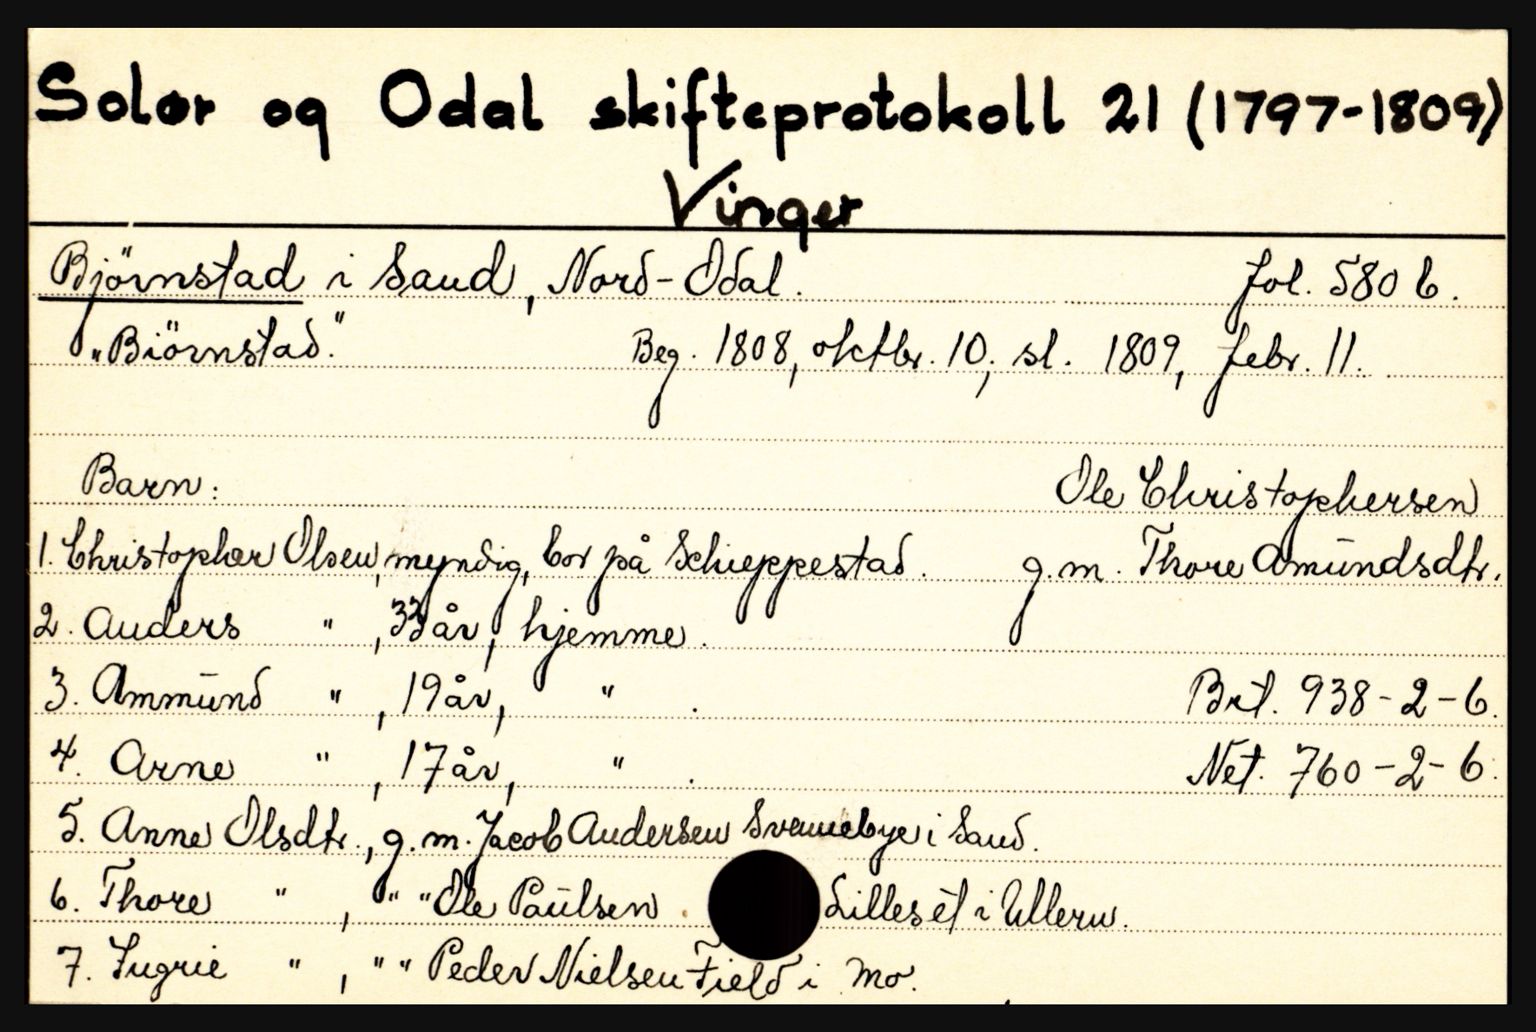 Solør og Odal skifteprotokoll 21 (1797-1809)
Vinger
Bjørnstad i Sand, Nord-Odal. fol. 580 b.
"Biörnstad." Beg. 1808, oktbr. 10, sl. 1809, febr. 11.
Barn: Ole Christophersen
1. Christopher Olsen, myndig, bor på Schieppestad. g.m. Thore Amundsdtr.
2. Anders " , 33 år, hjemme.
3. Ammund " , 19 år, " . Brt. 938-2-6.
4. Arne " , 17 år, " . Net. 760-2-6.
5. Anne Olsdtr., g.m. Jacob Andersen Svennebye i Sand.
6. Thore " , " " Ole Paulsen Lilleset i Ullern.
7. Ingrie " , " " Peder Nielsen Field i Mo.